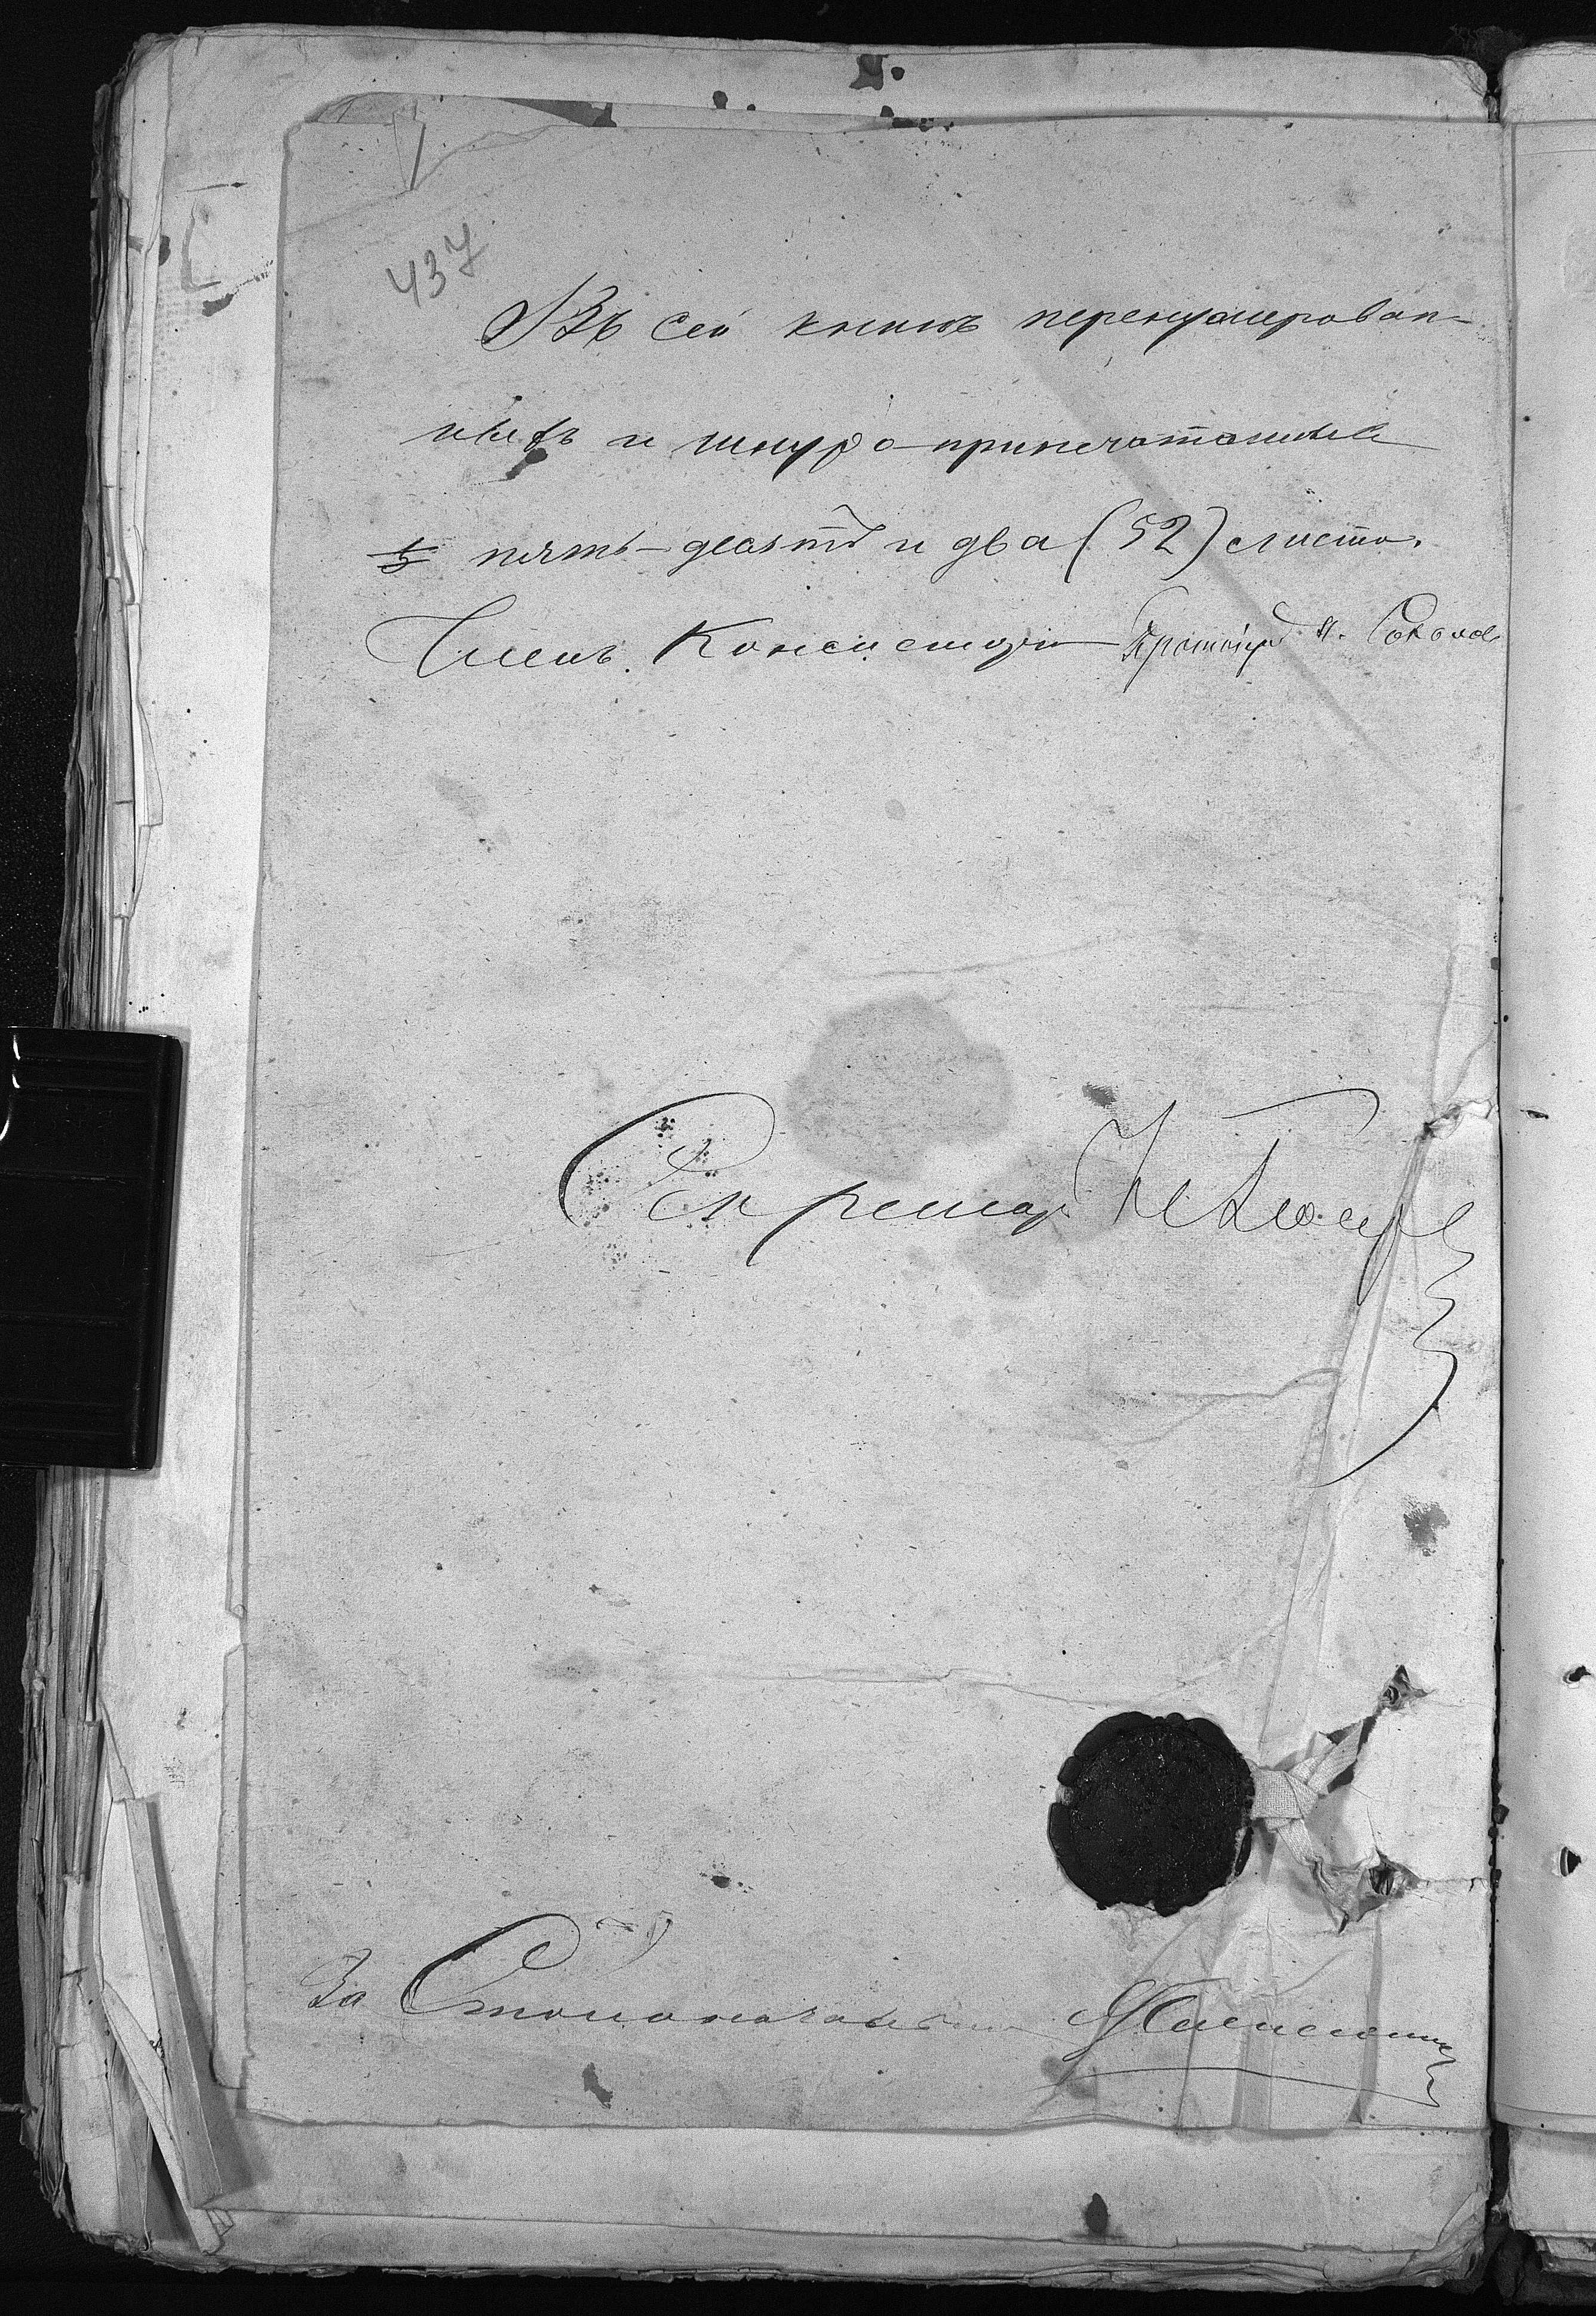 437
Въ сей книгѣ перенумерован-
ныхъ и шнуро-припечатанныхъ
пять-десятъ и два (52) листа.
Членъ Консисторіи Протоіер. Соколовъ
Секретарь
За Столоначальника